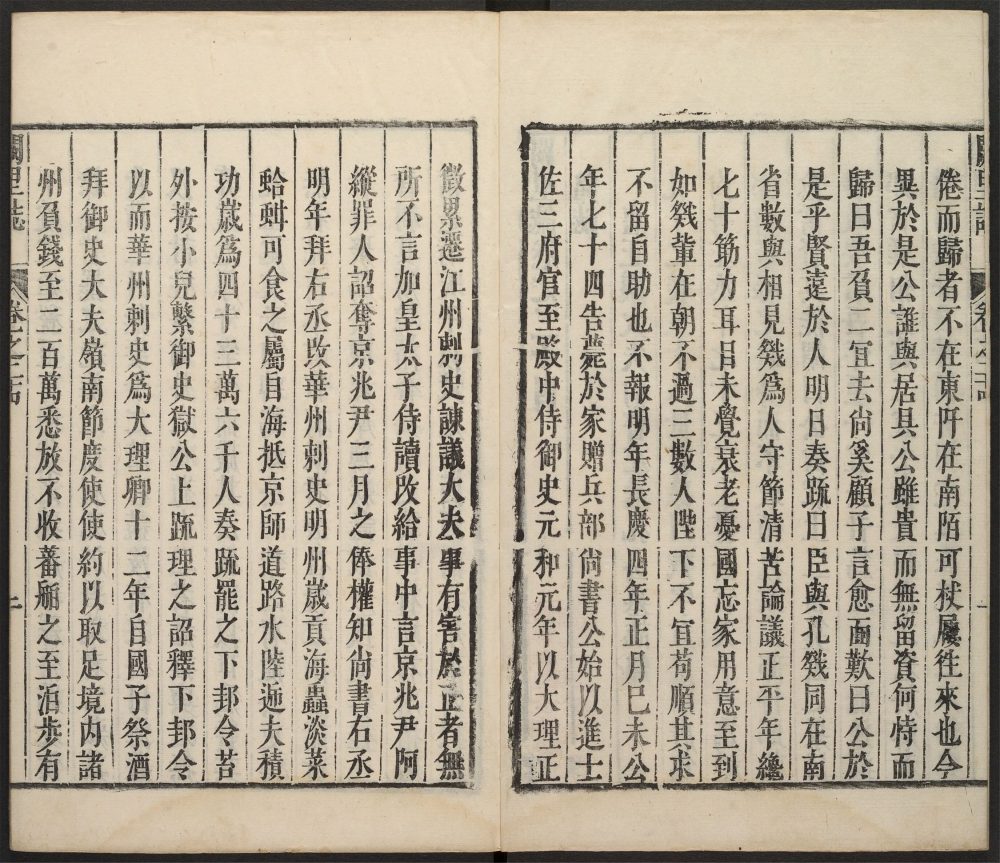 倦而歸者不在東阡在南陌可杖屨徃來也今
異於是公誰與居具公雖貴而無留資何恃而
歸曰吾負二宜去尚奚顧子言愈面歎曰公於
是乎賢遠於人明日奏䟽曰臣與孔戣同在南
省數與相見戣爲人守節清苦論議正平年纔
七十筋力耳目未覺衰老憂國忘家用意至到
如戣輩在朝不過三數人陛下不宜苟順其求
不留自助也不報明年長慶四年正月巳未公
年七十四告薨於家贈兵部尚書公始以進士
佐三府官至殿中侍御史元和元年以大理正
徵累遷江州刺史諫議大夫事有害於正者無
所不言加皇太子侍讀改給事中言京兆尹阿
縱罪人詔奪京兆尹三月之俸權知尚書右丞
明年拜右丞改華州刺史明州歲貢海蟲淡菜
蛤蚶可食之屬自海抵京師道路水陸逓夫積
功歲爲四十三萬六千人奏䟽罷之下邽令笞
外按小兒繫御史獄公上䟽理之詔釋下邽令
以而華州刺史爲大理卿十二年自國子祭酒
拜御史大夫嶺南節度使使約以取足境内諸
州負錢至二百萬悉放不收蕃舶之至泊步有
闕里誌
卷之二十四